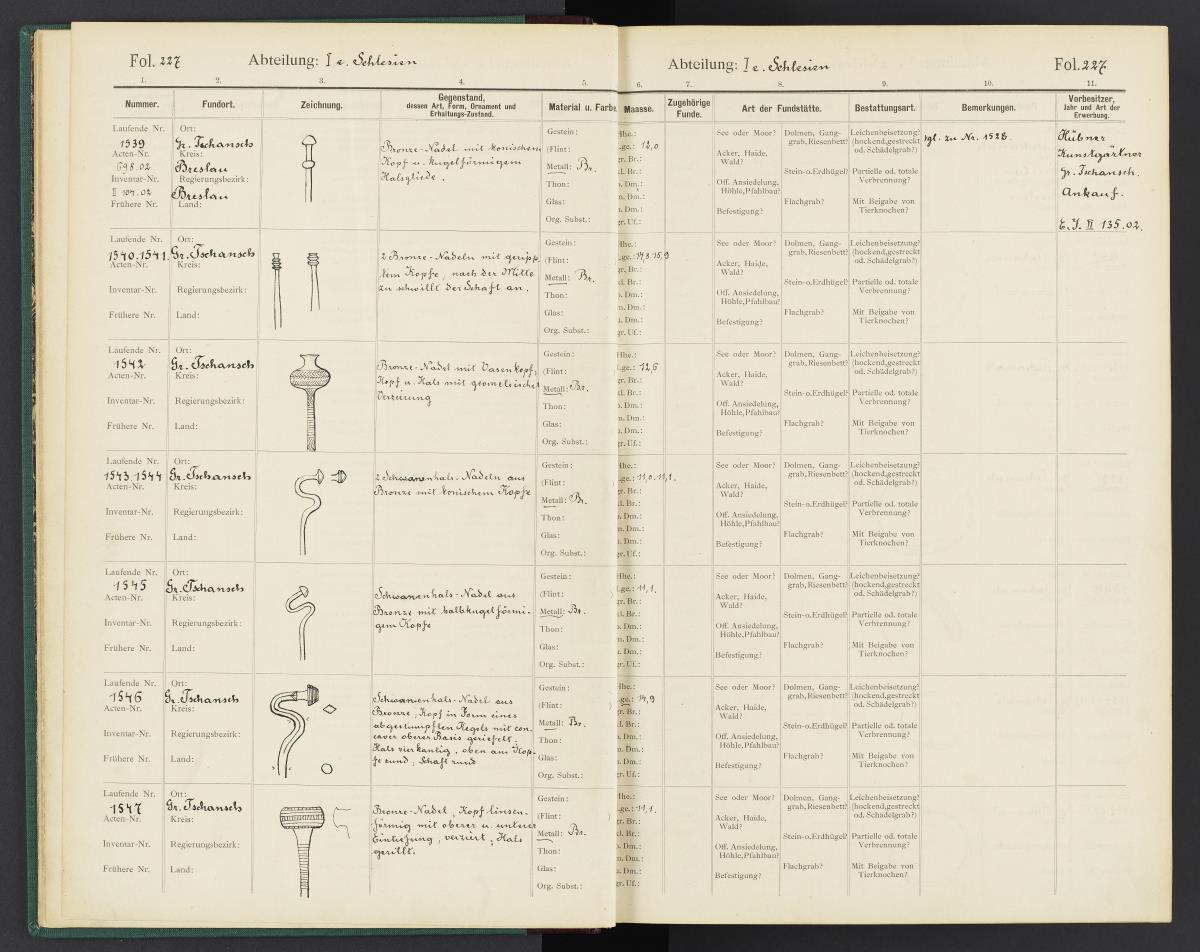 Fol. 227 Abteilung: I e. Schlesien
1. 2. 3. 4. 5.
Nummer. Fundort. Zeichnung. Gegenstand, dessen Art, Form, Ornament und Erhaltungs-Zustand. Material u. Farbe
Laufende Nr. Ort: Gestein:
1539 Gr. Tschansch Bronze-Nadel mit konischem (Flint:
Acten-Nr. Kreis: Kopf u. kugelförmigem
698.02 Breslau Halsgliede. Metall: Br.
Inventar-Nr. Regierungsbezirk: Thon:
II 104.02 Breslau Glas:
Frühere Nr. Land: Org. Subst.:
Laufende Nr. Ort: Gestein:
1540.1541. Gr. Tschansch 2 Bronze-Nadeln mit geripp- (Flint:
Acten-Nr. Kreis: tem Kopfe, nach der Mitte Metall: Br.
Inventar-Nr. Regierungsbezirk: zu schwillt der Schaft an. Thon:
Glas:
Frühere Nr. Land: Org. Subst.:
Laufende Nr. Ort: Gestein:
1542 Gr. Tschansch Bronze-Nadel mit Vasenkopf, (Flint:
Acten-Nr. Kreis: Kopf u. Hals mit geometrischer Metall: Br.
Inventar-Nr. Regierungsbezirk: Verzierung Thon:
Glas:
Frühere Nr. Land: Org. Subst.:
Laufende Nr. Ort: Gestein:
1543.1544 Gr. Tschansch 2 Schwanenhals-Nadeln aus (Flint:
Acten-Nr. Kreis: Bronze mit konischem Kopfe Metall: Br.
Inventar-Nr. Regierungsbezirk: Thon:
Glas:
Frühere Nr. Land: Org. Subst.:
Laufende Nr. Ort: Gestein:
1545 Gr. Tschansch Schwanenhals-Nadel aus (Flint:
Acten-Nr. Kreis: Bronze mit halbkugelförmi- Metall: Br.
Inventar-Nr. Regierungsbezirk: gem Kopfe Thon:
Glas:
Frühere Nr. Land: Org. Subst.:
Laufende Nr. Ort: Gestein:
1546 Gr. Tschansch Schwanenhals-Nadel aus (Flint:
Acten-Nr. Kreis: Bronze, Kopf in Form eines
abgestumpften Kegels mit con- Metall: Br.
Inventar-Nr. Regierungsbezirk: caver oberer Basis geriefelt; Thon:
Hals vierkantig, oben am Kop- Glas:
Frühere Nr. Land: fe rund, Schaft rund Org. Subst.:
Laufende Nr. Ort: Gestein:
1547 Gr. Tschansch Bronze-Nadel, Kopf linsen- (Flint:
Acten-Nr. Kreis: förmig mit oberer u. unterer Metall: Br.
Inventar-Nr. Regierungsbezirk: Eintiefung, verziert, Hals Thon:
gerillt. Glas:
Frühere Nr. Land: Org. Subst.:
Abteilung: I e. Schlesien Fol. 227
6. 7. 8. 9. 10. 11.
Maasse. Zugehörige Funde. Art der Fundstätte. Bestattungsart. Bemerkungen. Vorbesitzer, Jahr und Art der Erwerbung.
Hhe.: See oder Moor? Dolmen, Gang- Leichenbeisetzung? vgl. zu Nr. 1528. Hübner
Lge.: 12,0 grab, Riesenbett? (hockend, gestreckt Kunstgärtner
gr. Br.: Acker, Haide, od. Schädelgrab?) Gr. Tschansch.
kl. Br.: Wald? Stein-o. Erdhügel? Partielle od. totale
Dm.: Off. Ansiedelung, Verbrennung? Ankauf.
Dm.: Höhle, Pfahlbau? Flachgrab? Mit Beigabe von
gr. Uf.: Befestigung? Tierknochen? E. J. II 135.02.
Hhe.: See oder Moor? Dolmen, Gang- Leichenbeisetzung?
Lge.: 14,8.15,9 grab, Riesenbett? (hockend, gestreckt
gr. Br.: Acker, Haide, od. Schädelgrab?)
kl. Br.: Wald? Stein-o. Erdhügel? Partielle od. totale
Dm.: Off. Ansiedelung, Verbrennung?
Dm.: Höhle, Pfahlbau? Flachgrab? Mit Beigabe von
gr. Uf.: Befestigung? Tierknochen?
Hhe.: See oder Moor? Dolmen, Gang- Leichenbeisetzung?
Lge.: 12,6 grab, Riesenbett? (hockend, gestreckt
gr. Br.: Acker, Haide, od. Schädelgrab?)
kl. Br.: Wald? Stein-o. Erdhügel? Partielle od. totale
Dm.: Off. Ansiedelung, Verbrennung?
Dm.: Höhle, Pfahlbau? Flachgrab? Mit Beigabe von
gr. Uf.: Befestigung? Tierknochen?
Hhe.: See oder Moor? Dolmen, Gang- Leichenbeisetzung?
Lge.: 11,0.11,1. grab, Riesenbett? (hockend, gestreckt
gr. Br.: Acker, Haide, od. Schädelgrab?)
kl. Br.: Wald? Stein-o. Erdhügel? Partielle od. totale
Dm.: Off. Ansiedelung, Verbrennung?
Dm.: Höhle, Pfahlbau? Flachgrab? Mit Beigabe von
gr. Uf.: Befestigung? Tierknochen?
Hhe.: See oder Moor? Dolmen, Gang- Leichenbeisetzung?
Lge.: 11,1. grab, Riesenbett? (hockend, gestreckt
gr. Br.: Acker, Haide, od. Schädelgrab?)
kl. Br.: Wald? Stein-o. Erdhügel? Partielle od. totale
Dm.: Off. Ansiedelung, Verbrennung?
Dm.: Höhle, Pfahlbau? Flachgrab? Mit Beigabe von
gr. Uf.: Befestigung? Tierknochen?
Hhe.: See oder Moor? Dolmen, Gang- Leichenbeisetzung?
Lge.: 14,9 grab, Riesenbett? (hockend, gestreckt
gr. Br.: Acker, Haide, od. Schädelgrab?)
kl. Br.: Wald? Stein-o. Erdhügel? Partielle od. totale
Dm.: Off. Ansiedelung, Verbrennung?
Dm.: Höhle, Pfahlbau? Flachgrab? Mit Beigabe von
gr. Uf.: Befestigung? Tierknochen?
Hhe.: See oder Moor? Dolmen, Gang- Leichenbeisetzung?
Lge.: 11,1. grab, Riesenbett? (hockend, gestreckt
gr. Br.: Acker, Haide, od. Schädelgrab?)
kl. Br.: Wald? Stein-o. Erdhügel? Partielle od. totale
Dm.: Off. Ansiedelung, Verbrennung?
Dm.: Höhle, Pfahlbau? Flachgrab? Mit Beigabe von
gr. Uf.: Befestigung? Tierknochen?